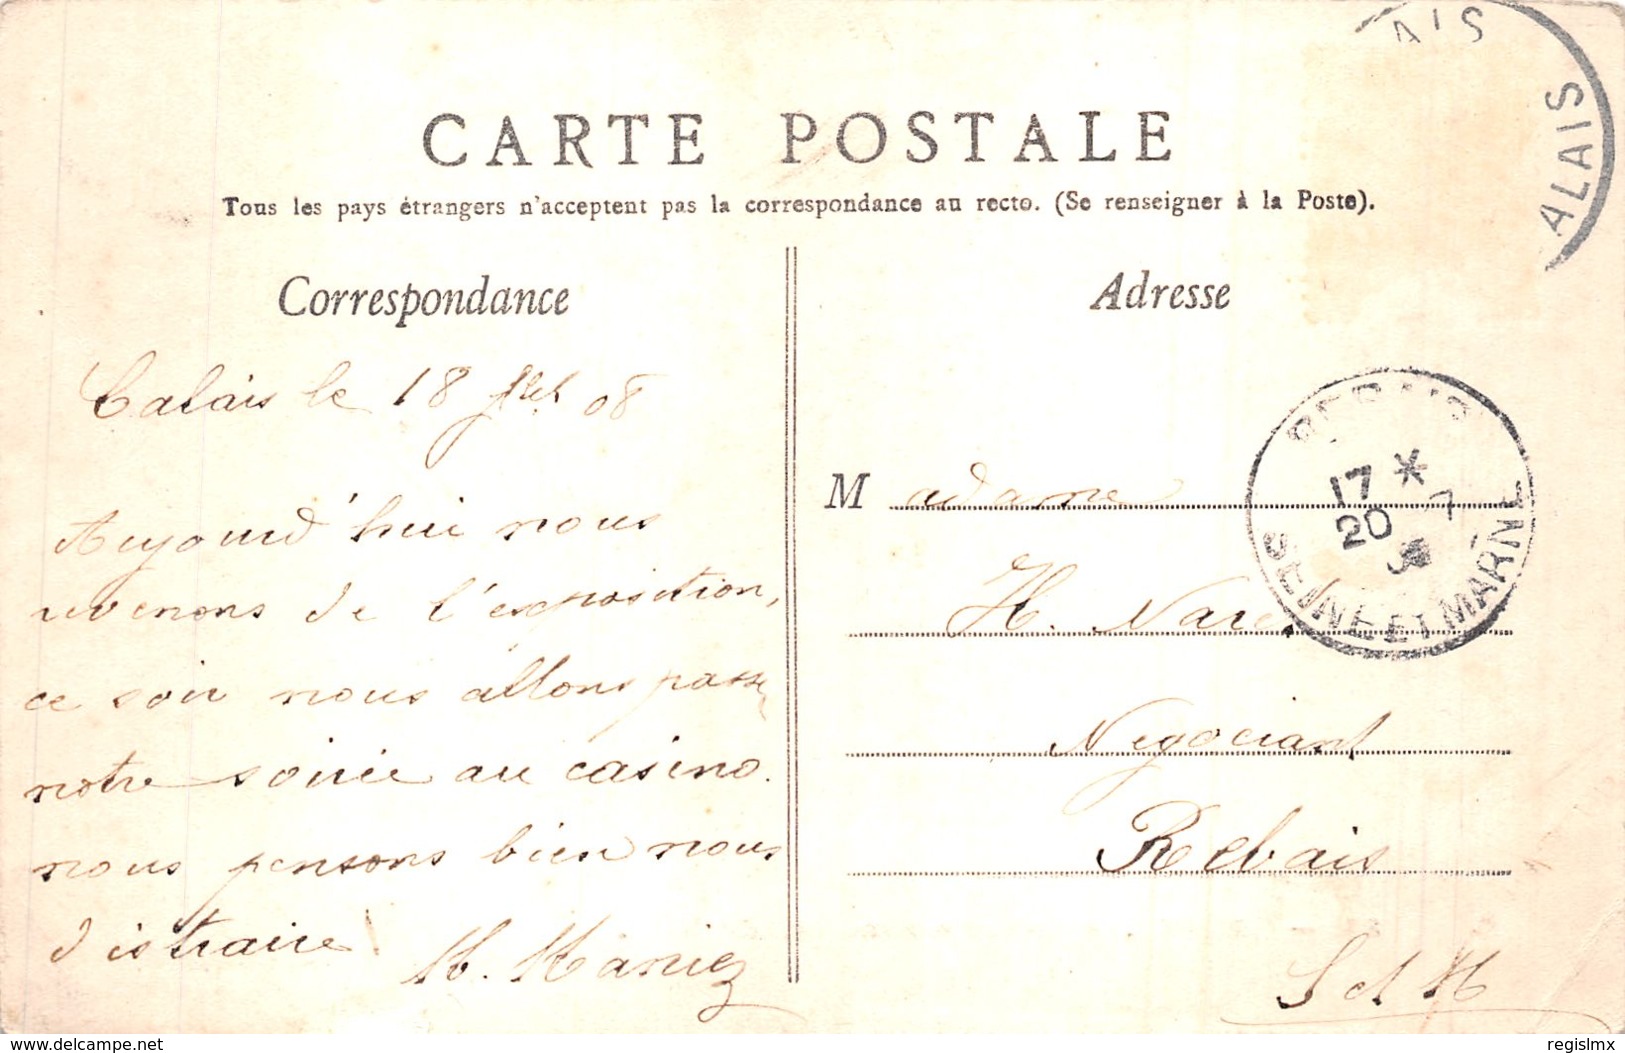 CARTE POSTALE
Tous les pays étrangers n'acceptent pas la correspondance au recto. (Se renseigner à la Poste).
Correspondance
Calais le 18 Jlet 08
Aujourd'hui nous
revenons de l'exposition,
ce soir nous allons passer
notre soirée au casino.
nous pensons bien nous
distraire!
H. Haniez
Adresse
Madame
H. Narel
Négociant
Rebais
S et M
AIS
ALAIS
REBAIS
17 *
20 7
SEINE ET MARNE
www.delcampe.net
regislmx